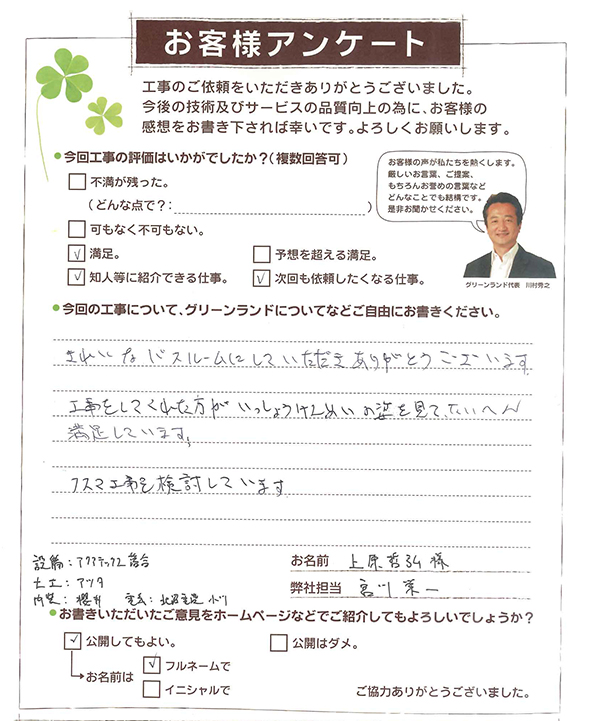 お客様アンケート
工事のご依頼をいただきありがとうございました。
今後の技術及びサービスの品質向上の為に、お客様の
感想をお書き下されば幸いです。よろしくお願いします。
●今回工事の評価はいかがでしたか?(複数回答可)
不満が残った。
(どんな点で?: )
可もなく不可もない。
満足。
予想を超える満足。
知人等に紹介できる仕事。
次回も依頼したくなる仕事。
お客様の声が私たちを熱くします。
厳しいお言葉、ご提案、
もちろんお誉めの言葉など
どんなことでも結構です。
是非お聞かせください。
グリーンランド代表 川村秀之
●今回の工事について、グリーンランドについてなどご自由にお書きください。
きれいなバスルームにしていただきありがとうございます
工事をしてくれた方がいっしょうけんめいの姿を見て、たいへん
満足しています。
フスマ工事を検討しています
設備:アクアテックス落合
大工:アツタ
内装:櫻井 電気:
お名前 上原哲弘様
弊社担当 宮川栄一
●お書きいただいたご意見をホームページなどでご紹介してもよろしいでしょうか?
公開してもよい。
公開はダメ。
お名前は
フルネームで
イニシャルで
ご協力ありがとうございました。